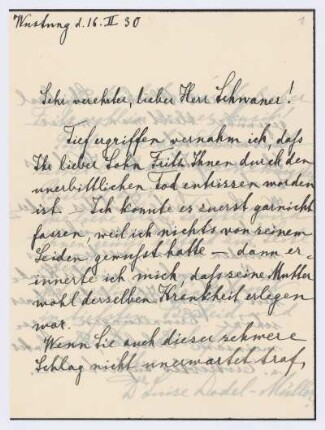 Wustung d. 16. II 30
1
Sehr verehrter, lieber Herr Schwaner!
Tief ergriffen vernahm ich, daß
Ihr lieber Sohn Frith Ihnen durch den
unerbittlichen Tod entrissen worden
ist. Ich konnte es zuerst garnicht
fassen, weil ich nichts von seinem
Leiden gewußt hatte – dann er-
innerte ich mich, daß seine Mutter
wohl derselben Krankheit erlegen
war.
Wenn Sie auch dieser schwere
Schlag nicht unerwartet traf,
Dr Luise Dodel-Müller